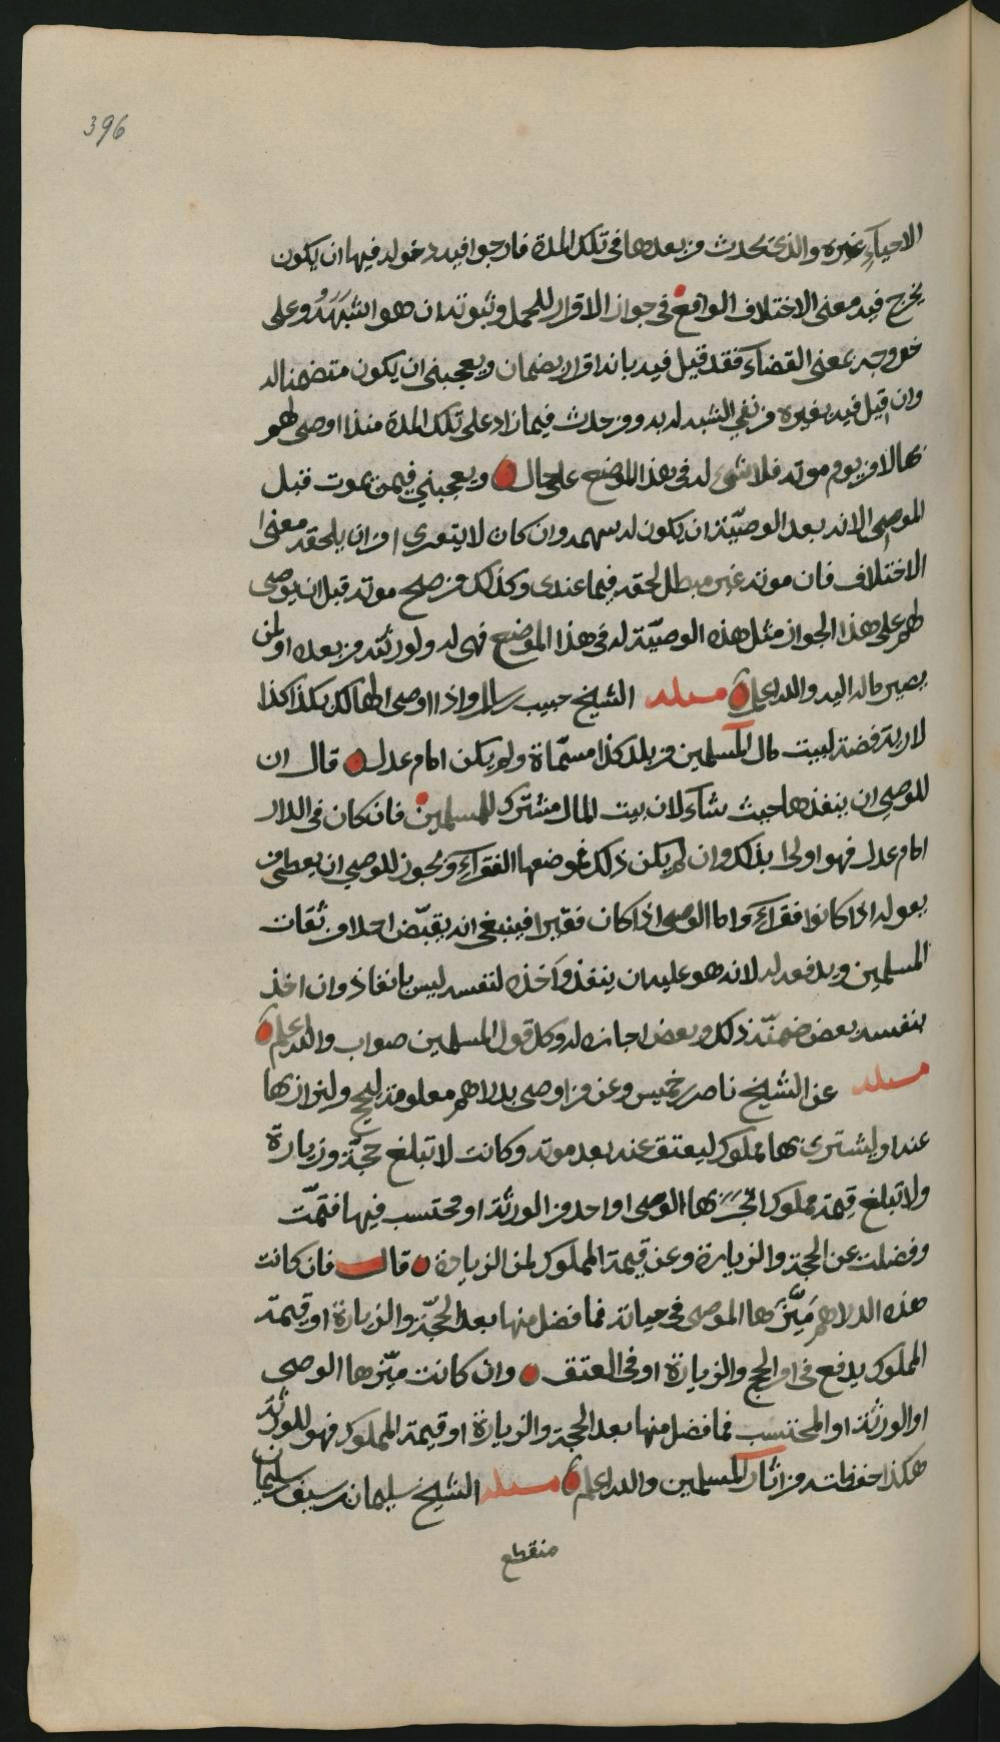 396
الاحياءِ غيره والذى يحدث من بعدها فى تلك المدة فارجوا فيه دخوله فيها ان يكون
يخرج فيه معنى الاختلاف الواقع فى جواز الاقرار للحمل وثبوته ان هو اشبهه وعلى
خروجه بمعنى القضاء فقد قيل فيه بانه اقرار بضمان ويعجبنى ان يكون متضمنا له
وان قيل فيه بغيره من نفي الشبه له به ومن حدث فيما زاد على تلك المدة منذ اوصى لهم
بها لا من يوم موته فلا شىء له فى هذا الموضع على حال ويعجبني فيمن يموت قبل
الموصى الا انه بعد الوصيّة ان يكون له سهمه وان كان لا يتعرى من ان يلحقه معنى
الاختلاف فان موته غير مبطل لحقه فيما عندى وكذلك من صلح موته قبل ان يوصى
لهم على هذا الجواز مثل هذه الوصيّة له فى هذا الموضع فهى له ولورثته من بعده او لمن
يصير ماله اليه والله اعلم مسئله الشيخ حبيب بن سالم واذا اوصى الهالك بكذا كذا
لارية فضة لبيت مال المسلمين من بلد كذا مسمّاة ولم يكن امام عدل قال ان
للوصي ان ينفذها حيث شاء لان بيت المال مشترك للمسلمين فان كان فى الدار
امام عدل فهو اولى بذلك وان لم يكن ذلك فموضعها الفقراءِ ويجوز للوصي ان يعطى من
يعوله اذا كانوا فقراءَ واما الوصى اذا كان فقيرا فينبغى انه يقبّض احدا من ثقات
المسلمين ويدفعه له لانه هو عليه ان ينفذ واخذه لنفسه ليس بانفاذ وان اخذ
بنفسه بعض ضمنّه ذلك وبعض اجازه له وكل قول المسلمين صواب والله اعلم
مسئله عن الشيخ ناصر بن خميس وعن من اوصى بدراهم معلومة ليحج وليزار بها
عنه او ليشترى بها مملوك ليعتق عنه بعد موته وكانت لا تبلغ حجّة وزيارة
ولا تبلغ قيمة مملوك اتجر بها الوصى او احد من الورثة او محتسب فيها فتمّت
وفضلت عن الحجة والزيارة وعن قيمة المملوك لمن الزيادة قال فان كانت
هذه الدراهم ميّزها الموصى فى حياته فما فضل منها بعد الحجّة والزيارة او قيمة
المملوك يدفع فى امر الحج والزيارة او فى العتق وان كانت ميّزها الوصى
او الورثة او المحتسب فما فضل منها بعد الحجة والزيارة او قيمة المملوك فهو للورثة
هكذا حفظته من اثار المسلمين والله اعلم مسئله الشيخ سليمان بن سيف سليمان
منقطع